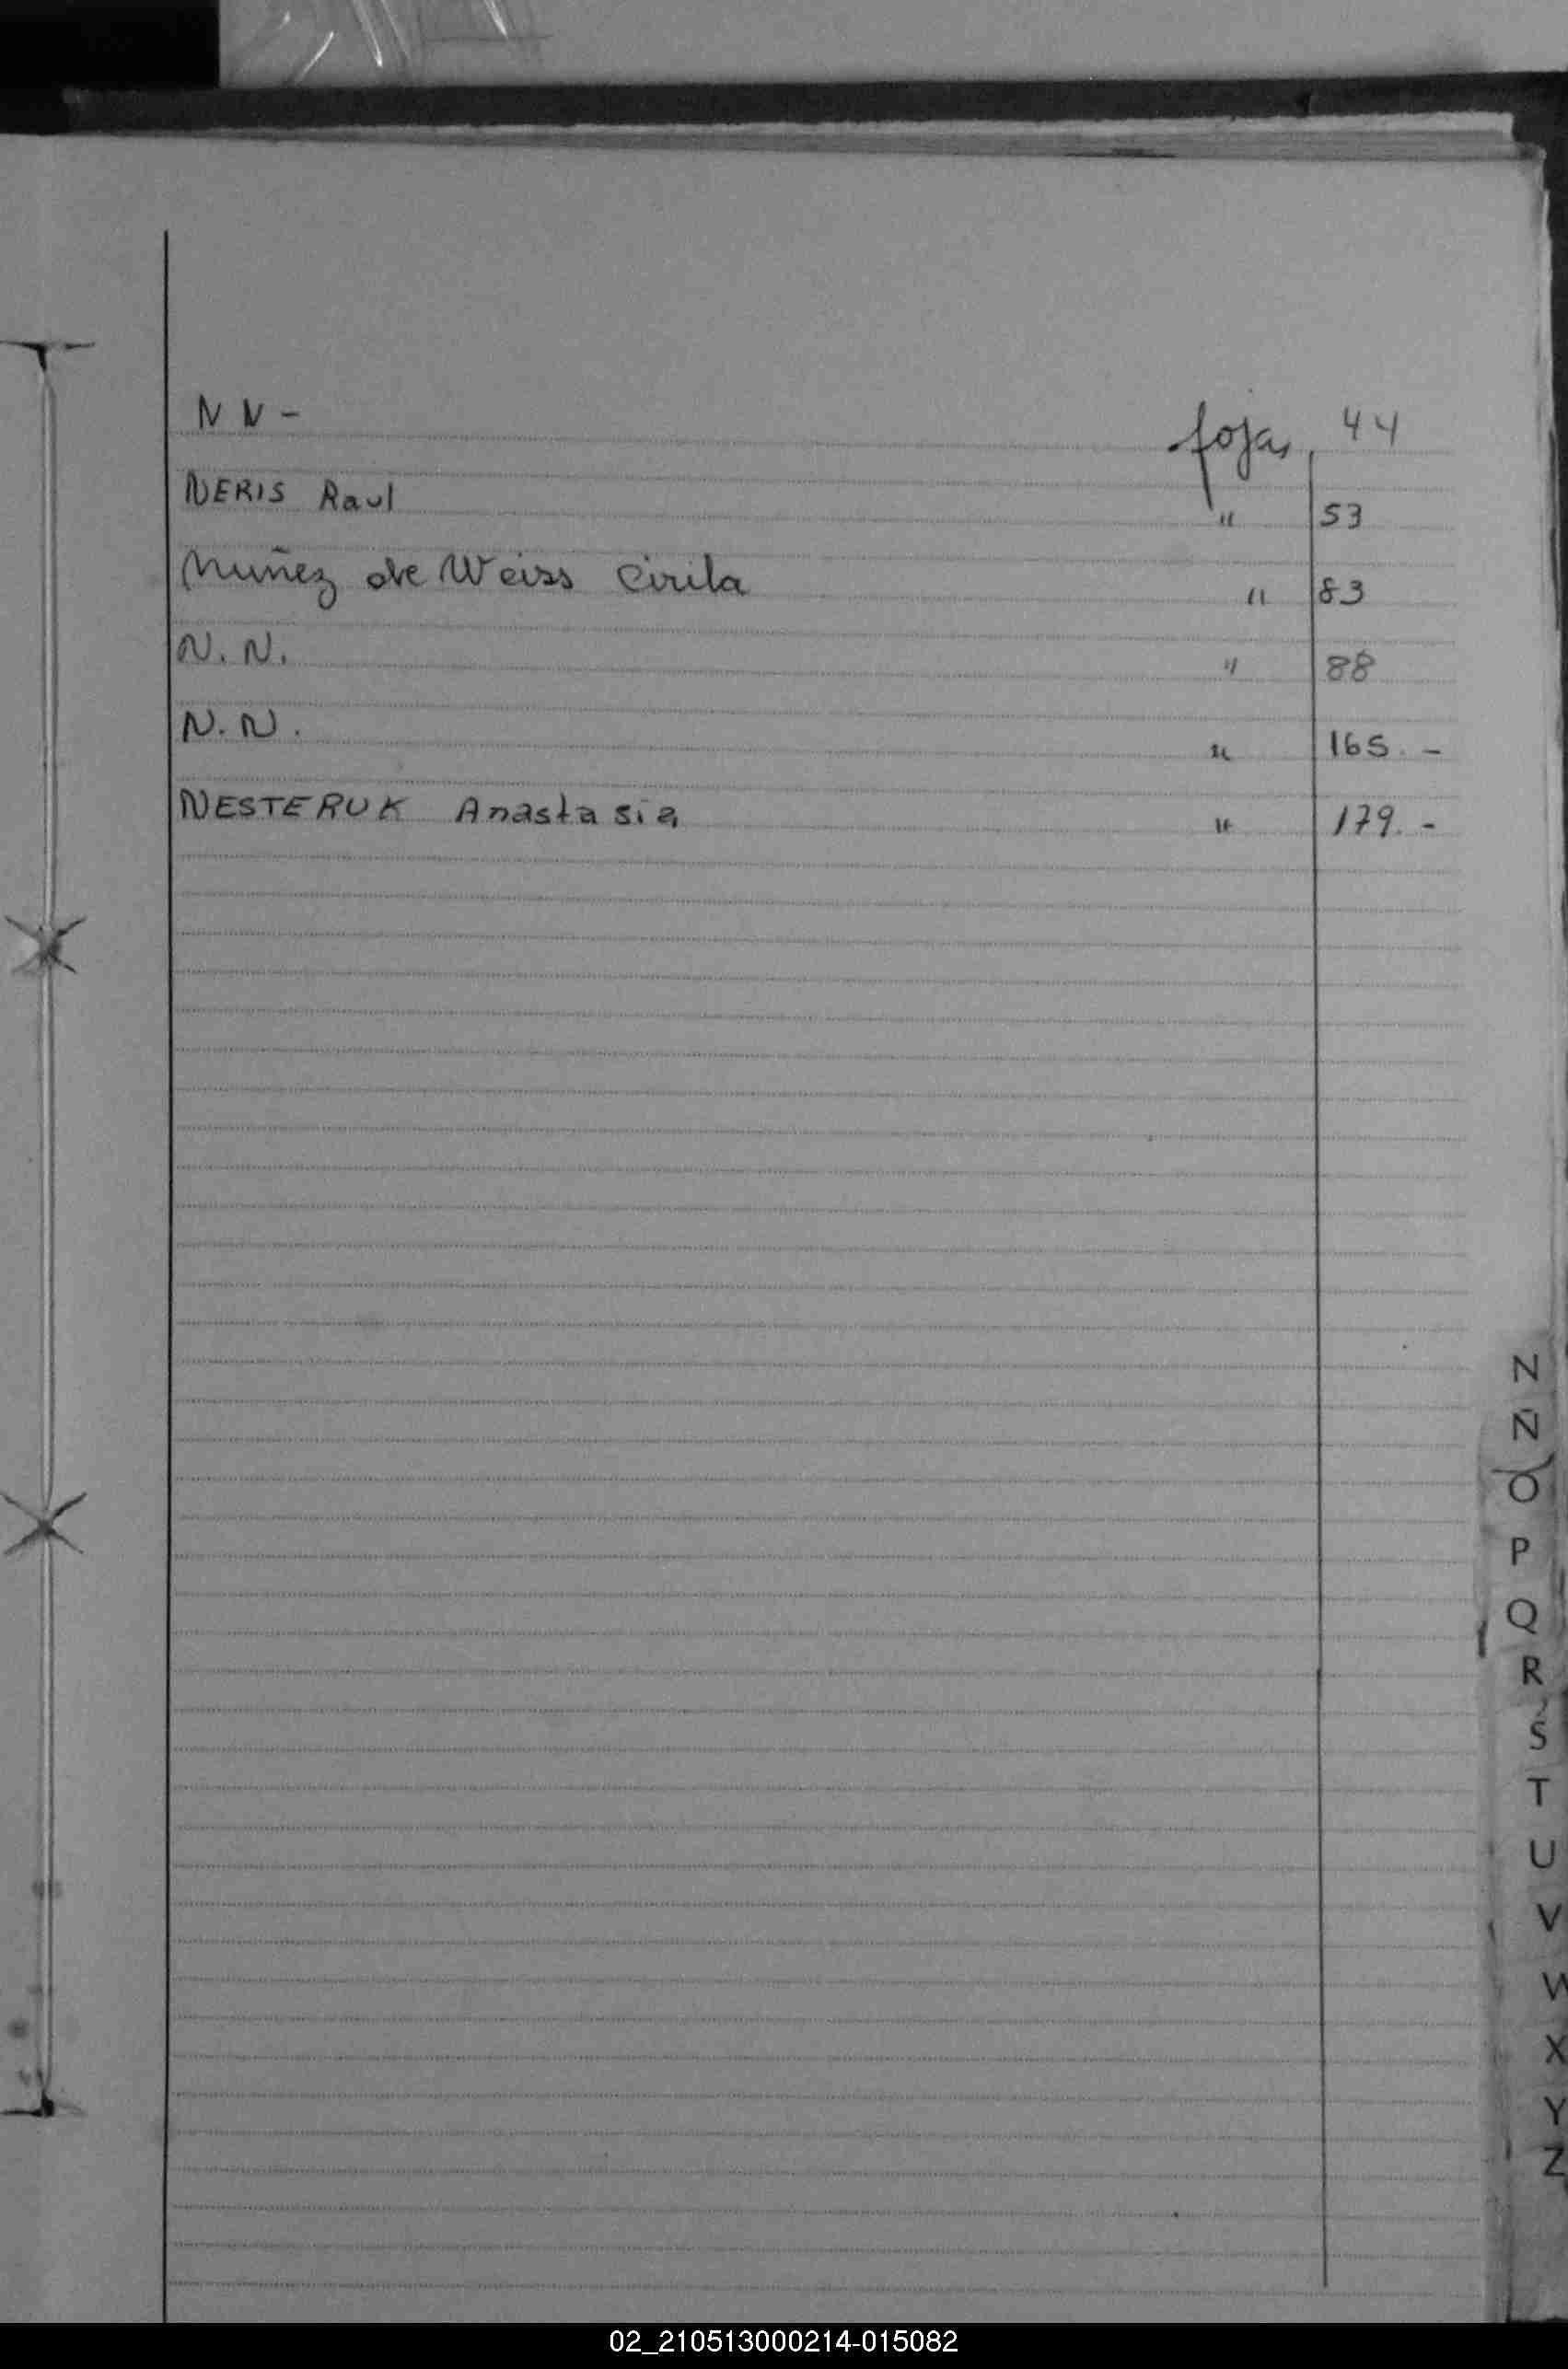 N N - fojas 44
NERIS Raul " 53
Nuñez de Weiss Cirila " 83
N. N. " 88
N. N. " 165. -
NESTERUK Anastasia " 179. -
N
Ñ
O
P
Q
R
S
T
U
V
W
X
Y
Z
02_210513000214-015082